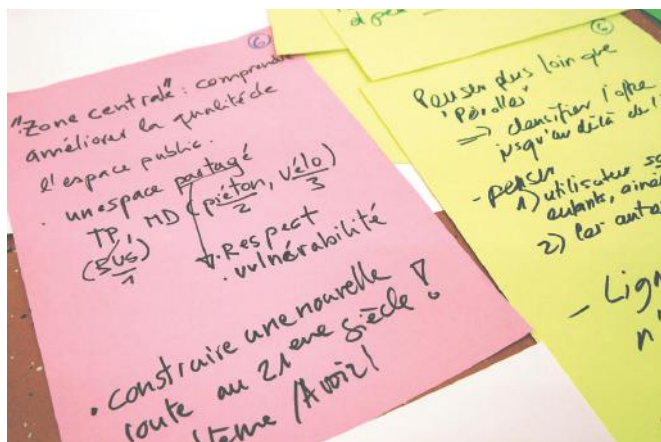 6
"Zone centrale": comprendre
améliorer la qualité de
l'espace public.
. un espace partagé
TP, MD (piéton, vélo)
2 3
(Bus)
1
. Respect
. vulnérabilité
. construire une nouvelle
route au 21 eme siècle !
6
Penser plus loin que
"Pérolles"
=> densifier l'offre
jusqu'au delà de l'
- penser
1) utilisateur
enfants, ainés
2) Les
- Lign
n'